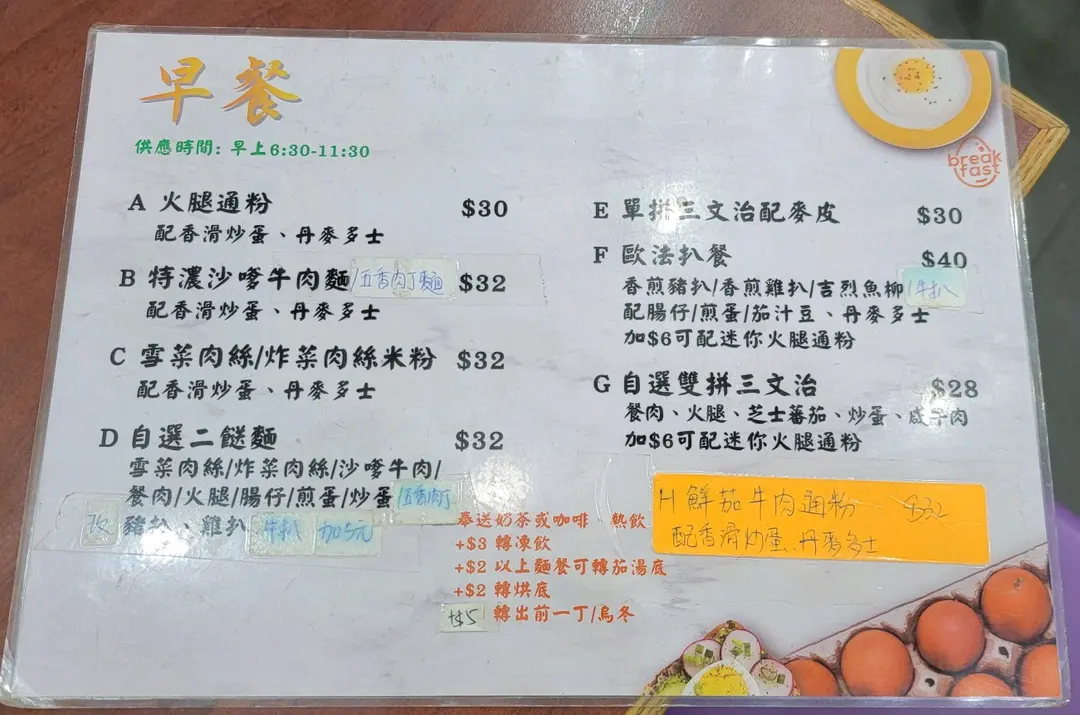 早餐
供應時間: 早上6:30-11:30
break
fast
A 火腿通粉 $30
配香滑炒蛋、丹麥多士
B 特濃沙嗲牛肉麵/五香肉丁麵 $32
配香滑炒蛋、丹麥多士
C 雪菜肉絲/炸菜肉絲米粉 $32
配香滑炒蛋、丹麥多士
D 自選二餸麵 $32
雪菜肉絲/炸菜肉絲/沙嗲牛肉/
餐肉/火腿/腸仔/煎蛋/炒蛋/五香肉丁
豬扒、雞扒 牛扒 加5元
E 單拼三文治配麥皮 $30
F 歐法扒餐 $40
香煎豬扒/香煎雞扒/吉烈魚柳/牛扒
配腸仔/煎蛋/茄汁豆、丹麥多士
加$6可配迷你火腿通粉
G 自選雙拼三文治 $28
餐肉、火腿、芝士蕃茄、炒蛋、咸牛肉
加$6可配迷你火腿通粉
H 鮮茄牛肉通粉 $32
配香滑炒蛋、丹麥多士
奉送奶茶或咖啡、熱飲
+$3 轉凍飲
+$2 以上麵餐可轉茄湯底
+$2 轉烘底
+$5 轉出前一丁/烏冬